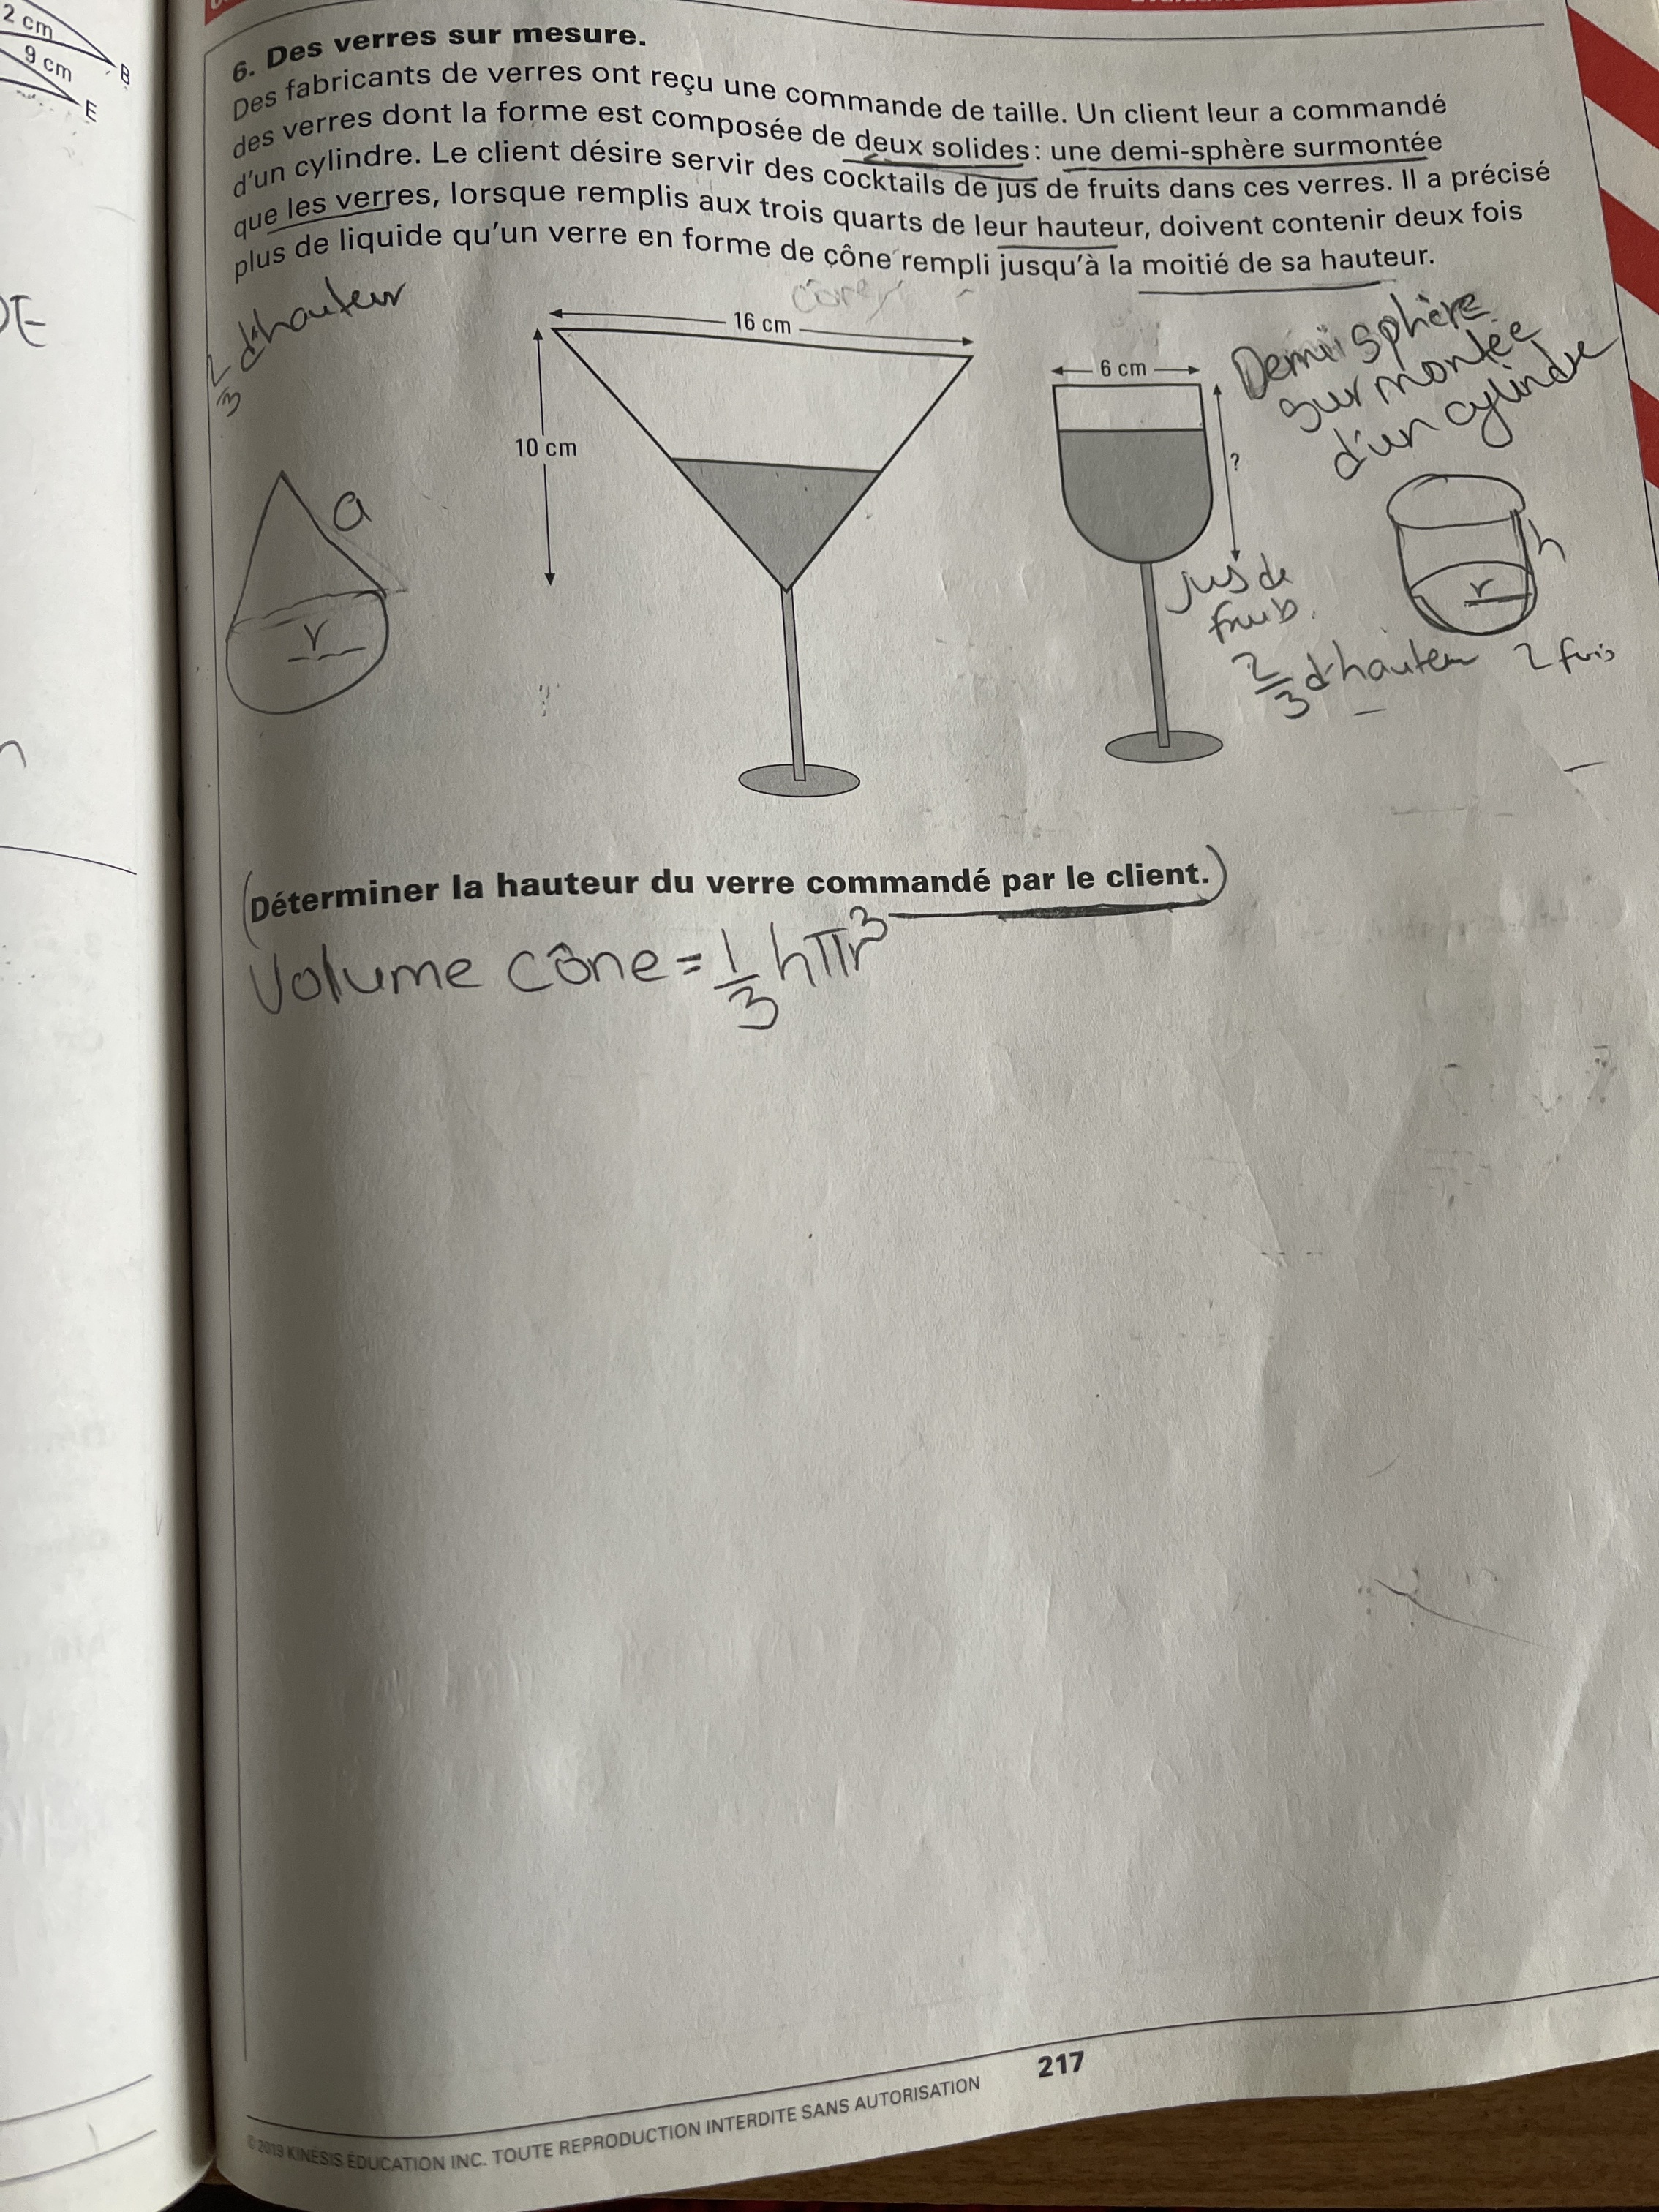 2 cm
9 cm
B
E
6. Des verres sur mesure.
Des fabricants de verres ont reçu une commande de taille. Un client leur a commandé
des verres dont la forme est composée de deux solides: une demi-sphère surmontée
d'un cylindre. Le client désire servir des cocktails de jus de fruits dans ces verres. Il a précisé
que les verres, lorsque remplis aux trois quarts de leur hauteur, doivent contenir deux fois
plus de liquide qu'un verre en forme de cône rempli jusqu'à la moitié de sa hauteur.
2/3 d'hauteur
16 cm
10 cm
a
r
6 cm
?
Demi sphère
surmontée
d'un cylindre
h
r
jus de
fruib.
2/3 d'hauteur 2 fois
(Déterminer la hauteur du verre commandé par le client.)
Volume cône = 1/3 hπr³
217
© 2019 KINÉSIS ÉDUCATION INC. TOUTE REPRODUCTION INTERDITE SANS AUTORISATION